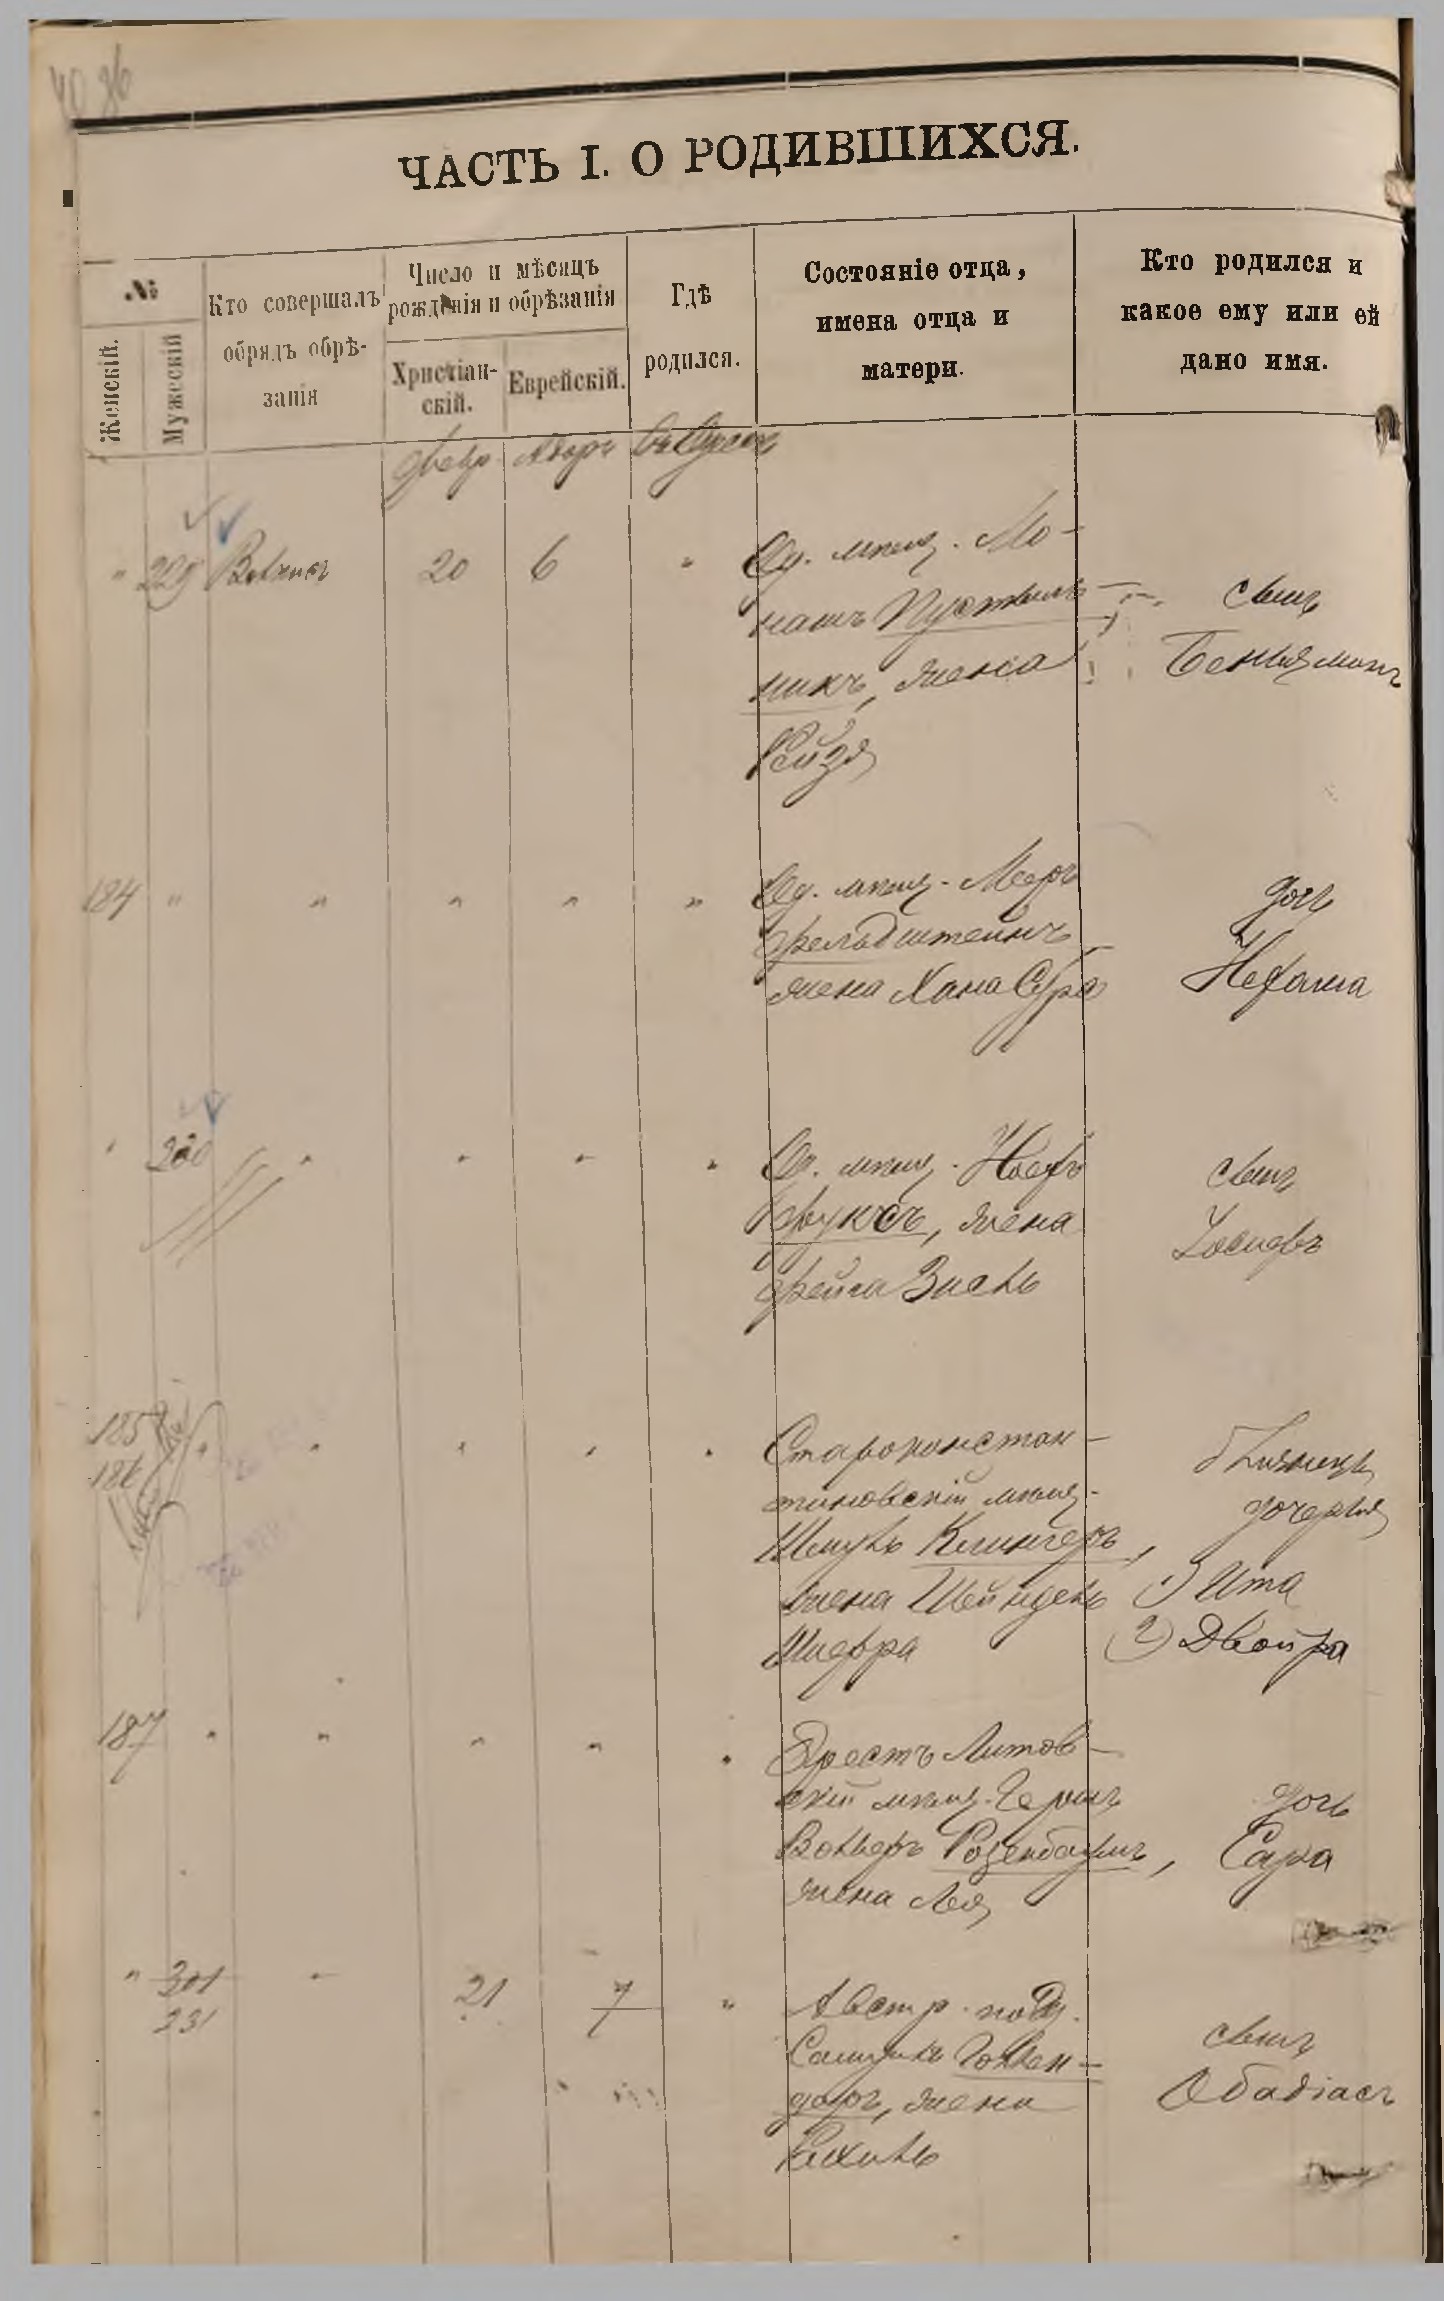 ЧАСТЬ I. О РОДИВШИХСЯ.
№
Женскій.
Мужескій
Кто совершалъ
обрядъ обрѣ-
занія
Число и мѣсяцъ
рожденія и обрѣзанія
Христіан-
скій.
Еврейскій.
Гдѣ
родился.
Состояніе отца,
имена отца и
матери.
Кто родился и
какое ему или ей
дано имя.
Февр. Адаръ
" 229 20 6 "
Од. мѣщ. Мо-
нашъ Пустыль-
никъ, жена
Рейзя
сынъ
Беньяминъ
184 " " " " "
Од. мѣщ. Меръ
Фельдштейнъ
жена Хана Сура
дочь
Нехама
" 230 " " " "
Од. мѣщ.
жена
Фейга Зисль
сынъ
Іосифъ
185 " " " " "
186
Староконстан-
тиновскій мѣщ.
Шмуль Клингеръ,
жена Шейндель
Шифра
близнецы
дочерья
1) Ита
2) Двойра
187 " " " " "
Брестъ Литов-
скій мѣщ. Гершъ
Вольфъ Розенбаумъ,
жена Лея
дочь
Сара
" 201 " 21 7 "
231
Австр. подд.
Самуилъ Голлен-
деръ, жена
Рахиль
сынъ
Обадіасъ